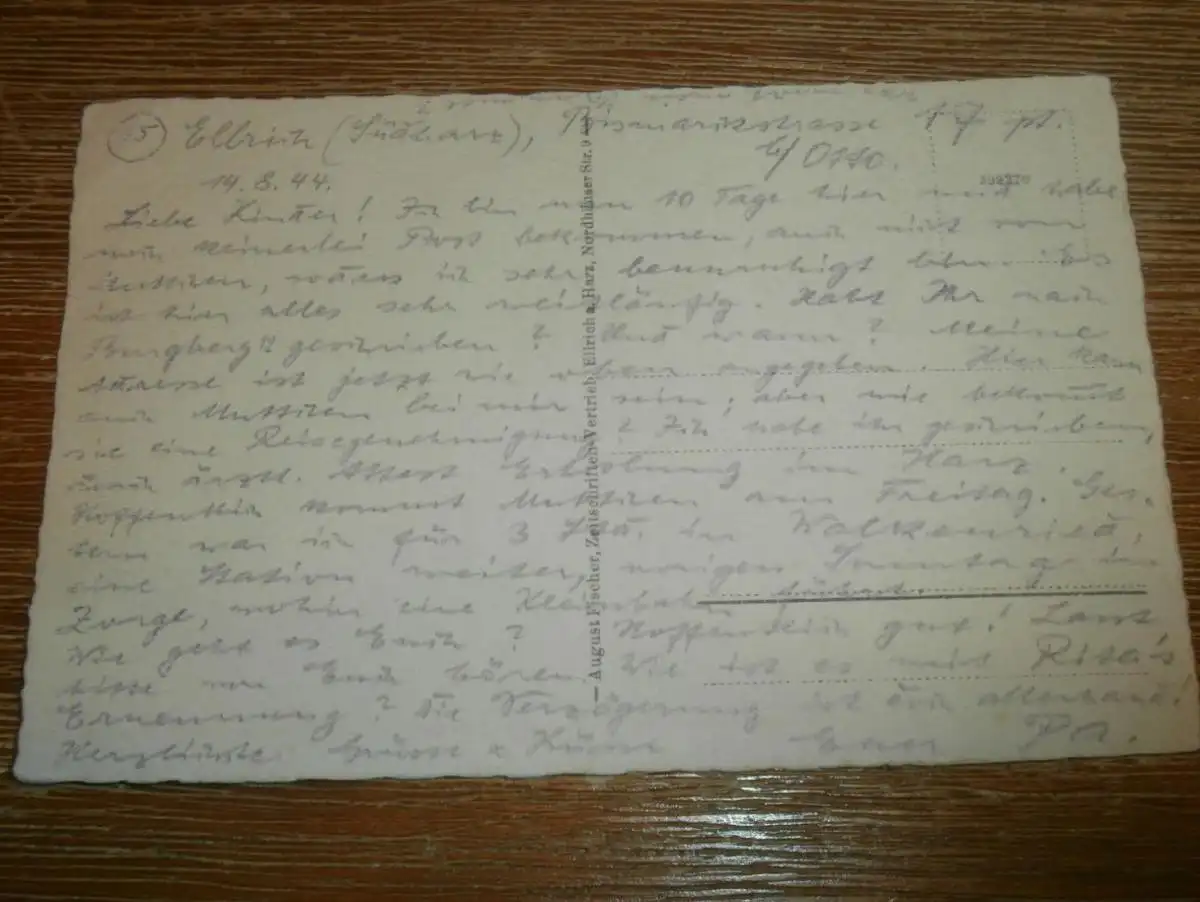 15 Ellrich (Südharz), Bismarckstrasse 17 pt.
b/ Otto.
14.8.44.
Liebe Kinder! Ich bin nun 10 Tage hier und habe
noch keinerlei Post bekommen, auch nicht von
Muttchen, worüber ich sehr beunruhigt bin. Es
ist hier alles sehr weitläufig. Habt Ihr nach
Burgberg geschrieben? Und wann? Meine
Adresse ist jetzt wie oben angegeben. Hier kann
auch Muttchen bei mir sein; aber wie bekommt
sie eine Reisegenehmigung? Ich habe ihr geschrieben,
durch ärztl. Attest Erholung im Harz.
Hoffentlich kommt Muttchen am Freitag. Ges-
tern war ich für 3 Std. in Walkenried,
eine Station weiter, vorigen Sonntag in
Zorge, wohin eine Kleinbahn
Wie geht es Euch? Hoffentlich gut! Lasst
bitte von Euch hören. Wie ist es mit Rita's
Ernennung? Die Verzögerung ist doch allerhand!
Herzlichste Grüsse & Küsse Euer Pa.
— August Fischer, Zeitschriften-Vertrieb, Ellrich a. Harz, Nordhäuser Str. 9